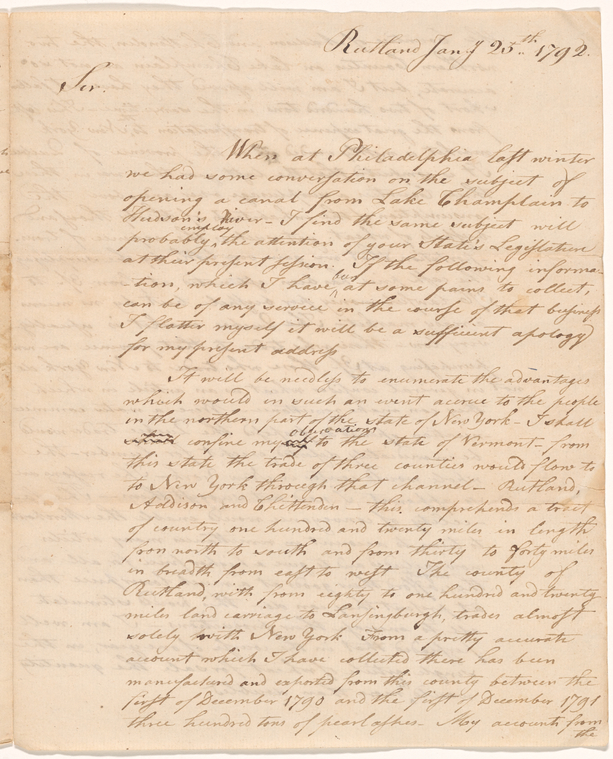 Rutland Jany 25th 1792.
Sir.
When at Philadelphia last winter
we had some conversation on the subject of
opening a canal from Lake Champlain to
Hudson's River - I find the same subject will
probably employ the attention of your State's Legislature
at their present session. If the following informa-
-tion, which I have been at some pains to collect,
can be of any service in the course of that business
I flatter myself it will be a sufficient apology
for my present address
It will be needless to enumerate the advantages
which would in such an event accrue to the people
in the northern part of the state of New York - I shall
confine my observations to the state of Vermont - from
this state the trade of three counties would flow to
to New York through that channel - Rutland,
Addison and Chittenden - this comprehends a tract
of country one hundred and twenty miles in length
from north to south and from thirty to forty miles
in breadth from east to west The county of
Rutland, with from eighty to one hundred and twenty
miles land carriage to Lansingburgh, trades almost
solely with New York From a pretty accurate
account which I have collected there has been
manufactured and exported from this county between the
first of December 1790 and the first of December 1791
three hundred tons of pearl ashes - My accounts from
the